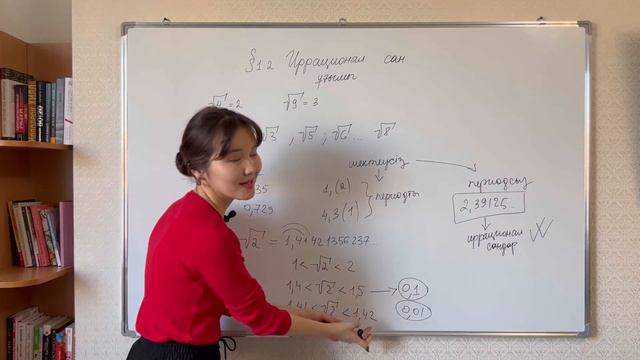 §1.2 Иррационал сан
ұғымы
√4 = 2 √9 = 3
√3 , √5 , √6 ... √8
шектеусіз
периодсыз
35
0,729
1,(2)
4,3(1)
периодты
2,39125...
иррационал
сандар
√2 = 1,41421356237...
1 < √2 < 2
1,4 < √2 < 1,5 → 0,1
1,41 < √2 < 1,42 0,01